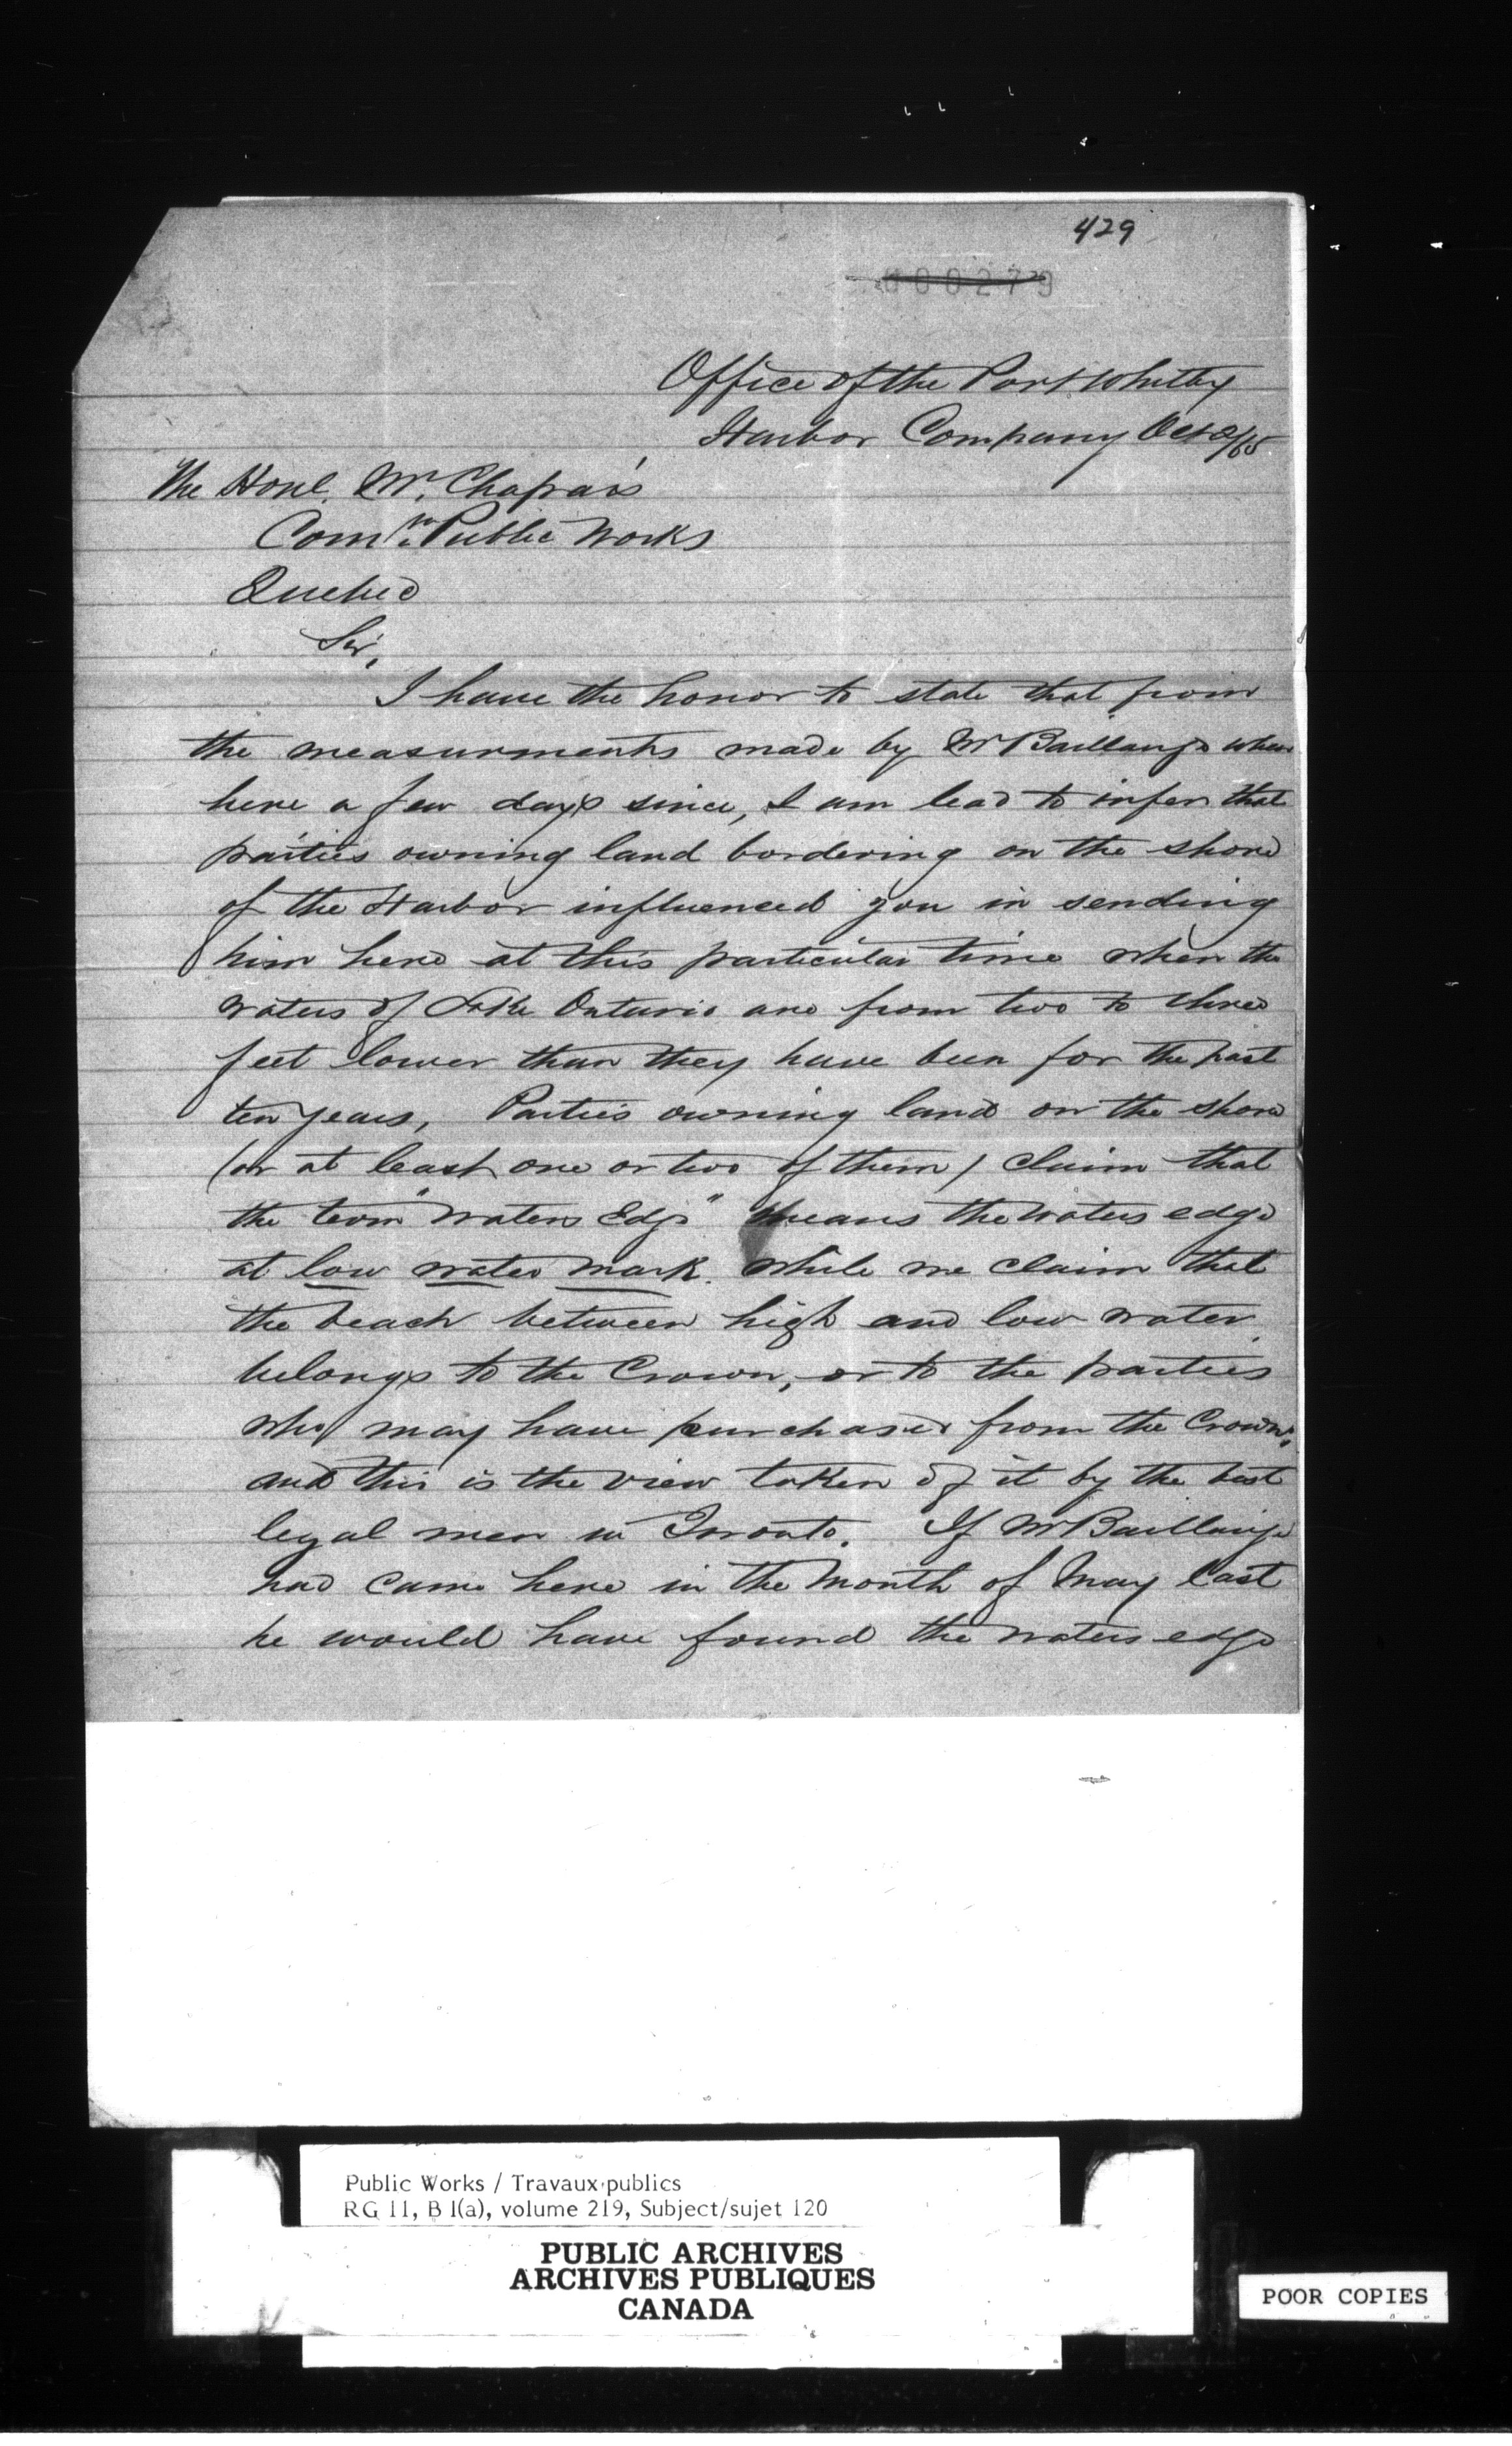 429
000279
Office of the Port Whitby
Harbor Company Oct 2/65
The Honl. Mr. Chapais
Comr. Public Works
Quebec
Sir,
I have the honor to state that from
the measurments made by Mr Baillairge when
here a few days since, I am lead to infer that
parties owning land bordering on the shore
of the Harbor influenced you in sending
him here at this particular time when the
waters of Lake Ontario are from two to three
feet lower than they have been for the past
ten years, Parties owning land on the shore
(or at least one or two of them) claim that
the term "Waters Edge" means the waters edge
at low water mark. While we claim that
the beach between high and low water
belongs to the Crown, or to the parties
who may have purchased from the Crown,
and this is the view taken of it by the best
legal men in Toronto. If Mr Baillairge
had came here in the month of May last
he would have found the waters edge
Public Works / Travaux publics
RG 11, B 1(a), volume 219, Subject/sujet 120
PUBLIC ARCHIVES
ARCHIVES PUBLIQUES
CANADA
POOR COPIES